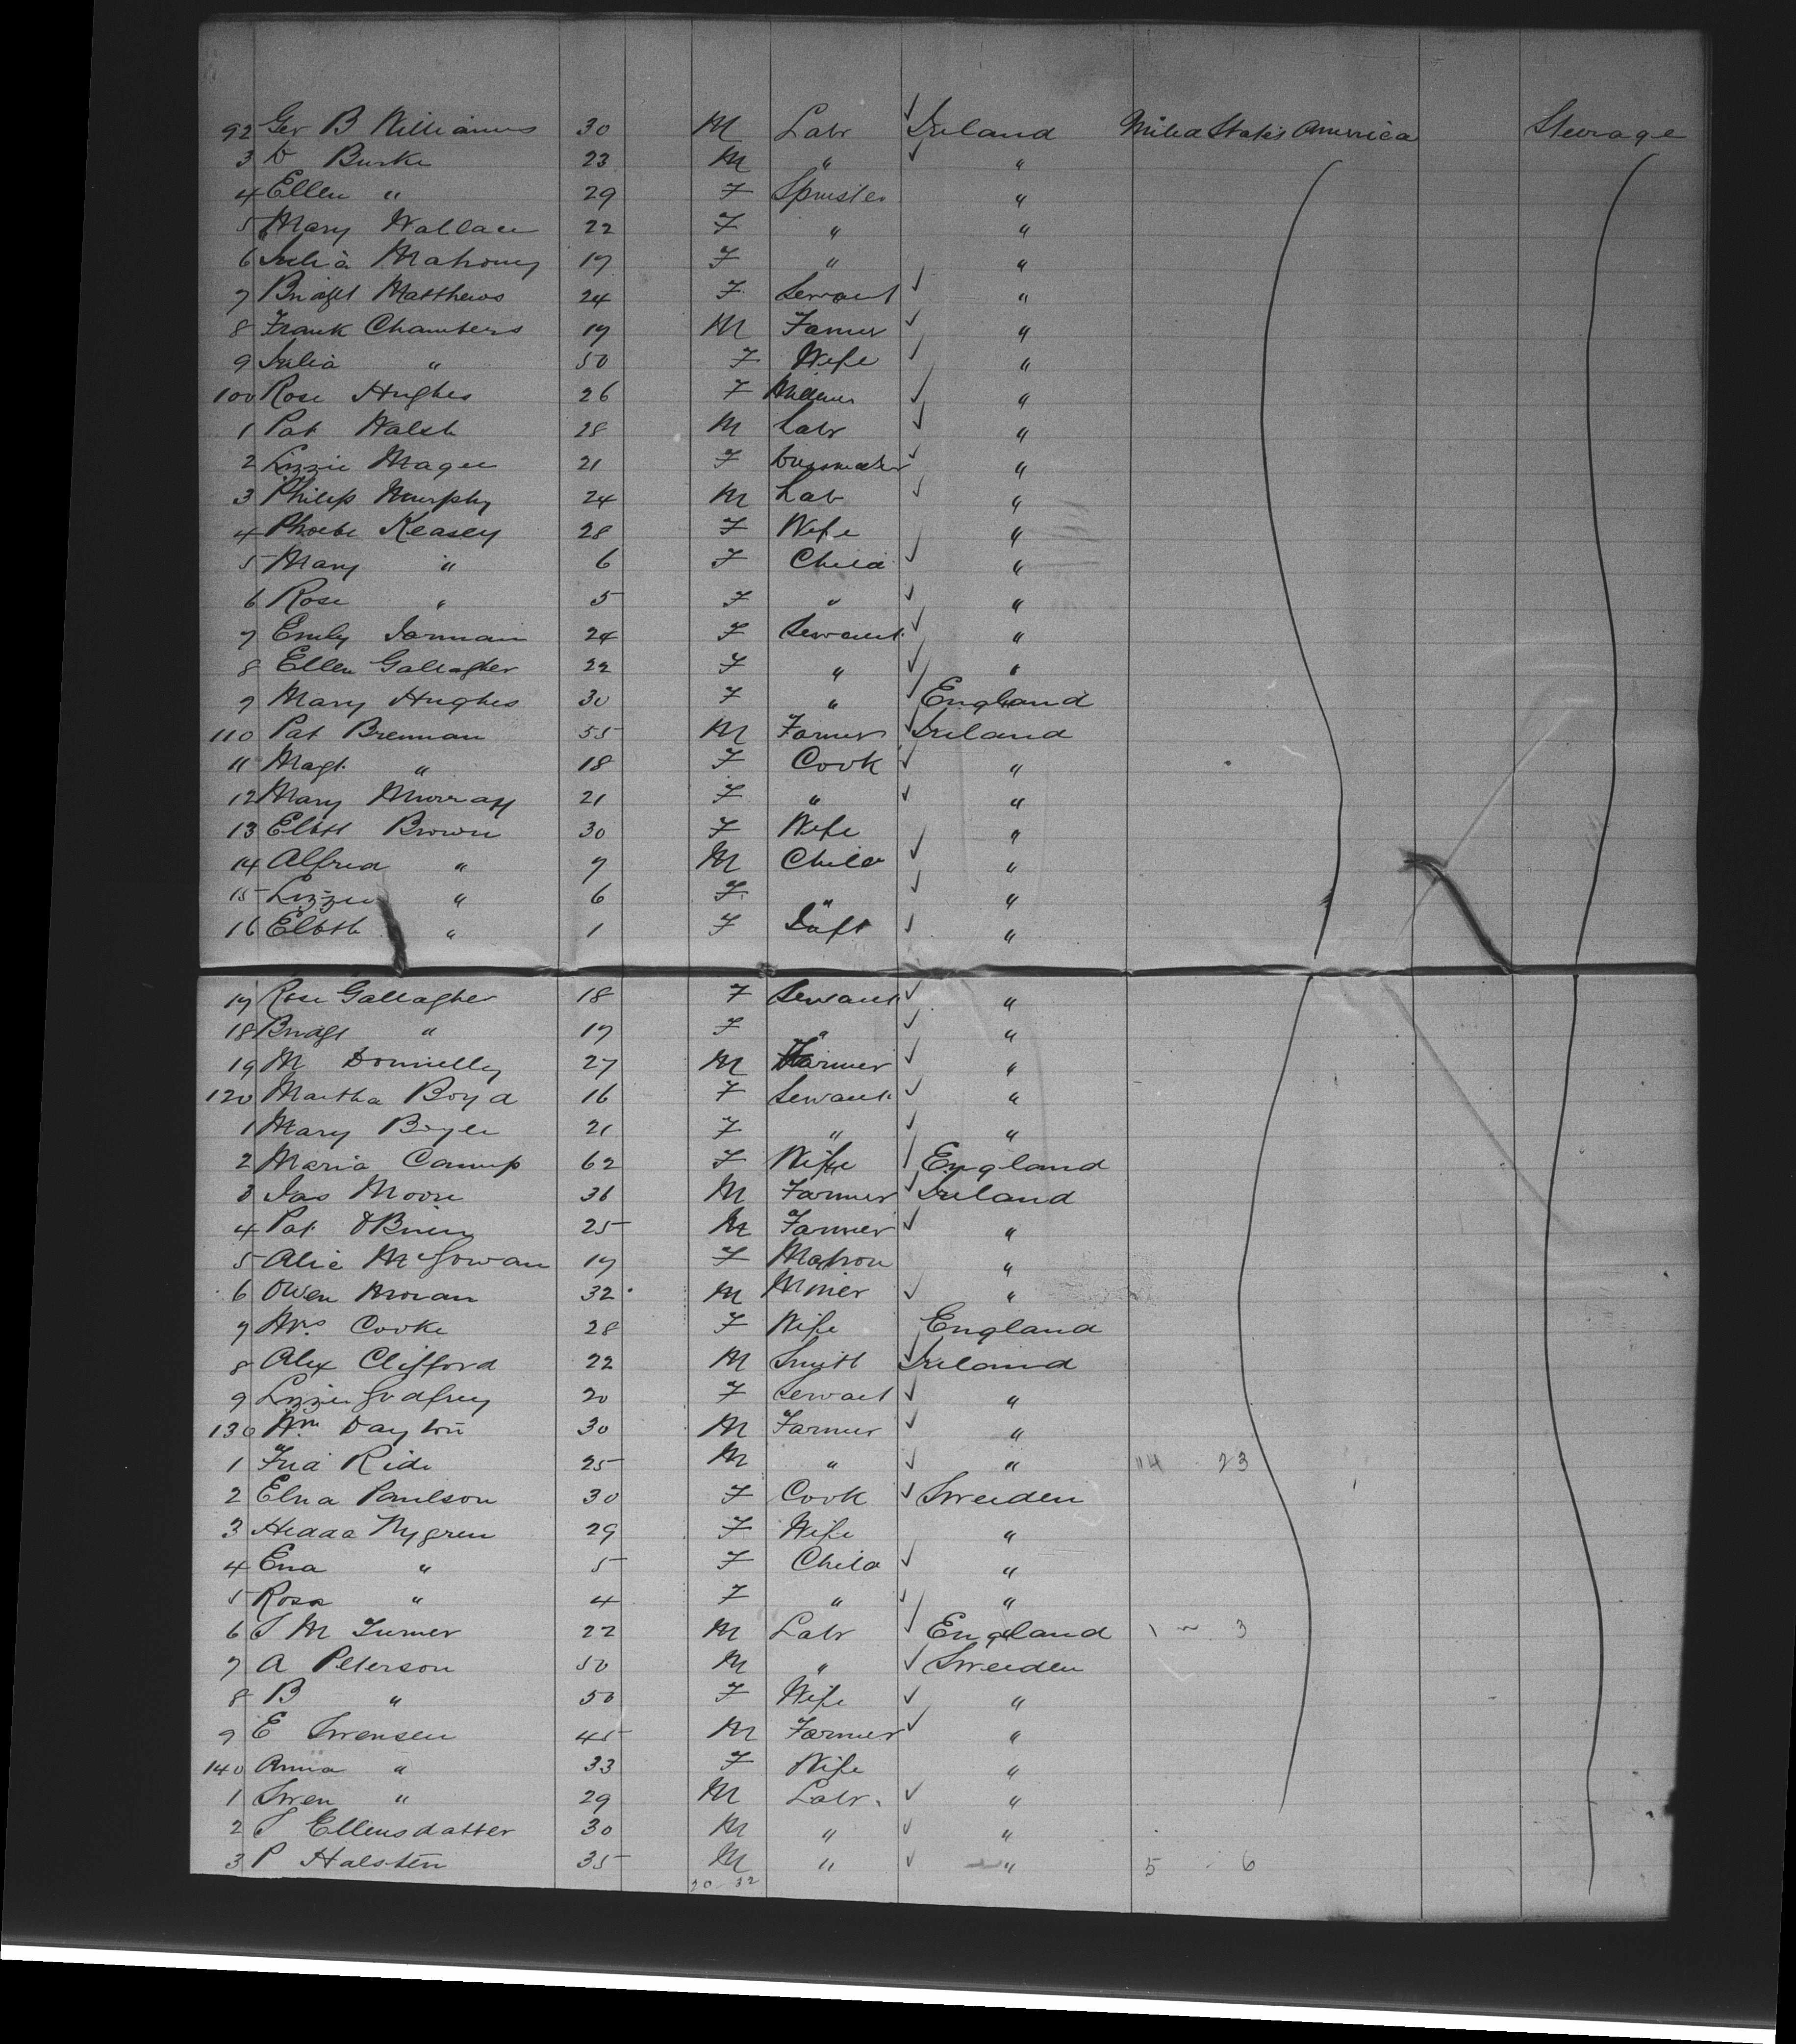 92 Geo B Williams 30 M Labr Ireland United States America Steerage
3 D Burke 23 M " "
4 Ellen " 29 F Spinster "
5 Mary Wallace 22 F " "
6 Julia Mahoney 17 F " "
7 Bridgt Matthews 24 F Servant "
8 Frank Chambers 19 M Farmer "
9 Julia " 50 F Wife "
100 Rose Hughes 26 F "
1 Pat Walsh 28 M Labr "
2 Lizzie Magee 21 F Dressmaker "
3 Philip Murphy 24 M Lab "
4 Phoebe Keasey 28 F Wife "
5 Mary " 6 F Child "
6 Rose " 5 F " "
7 Emily Jarman 24 F Servant "
8 Ellen Gallagher 22 F " "
9 Mary Hughes 30 F " England
110 Pat Brennan 55 M Farmer Ireland
11 Magt " 18 F Cook "
12 Mary Murray 21 F " "
13 Elbth Brown 30 F Wife "
14 Alfred " 7 M Child "
15 Lizzie " 6 F " "
16 Elbth " 1 F Inft "
17 Rose Gallagher 18 F Servant "
18 Bridgt " 17 F " "
19 M Donnelly 27 M Farmer "
120 Martha Boyd 16 F Servant "
1 Mary Boyle 21 F " "
2 Maria Camp 62 F Wife England
3 Jas Moore 36 M Farmer Ireland
4 Pat OBrien 25 M Farmer "
5 Alice McGowan 19 F Matron "
6 Owen Moran 32 M Miner "
7 Mrs Cooke 28 F Wife England
8 Alex Clifford 22 M Smith Ireland
9 Lizzie Godfrey 20 F Servant "
130 Wm Dayton 30 M Farmer "
1 Fred Ride 25 M " " 114 23
2 Elna Paulson 30 F Cook Sweden
3 Hedda Nygren 29 F Wife "
4 Ena " 5 F Child "
5 Rosa " 4 F " "
6 S M Turner 22 M Labr England 1 ~ 3
7 A Peterson 50 M " Sweden
8 B " 50 F Wife "
9 E Swensen 45 M Farmer "
140 Anna " 33 F Wife "
1 Swen " 29 M Labr. "
2 S Ellensdatter 30 M " "
3 P Halsten 35 M " " 5 6
20 32